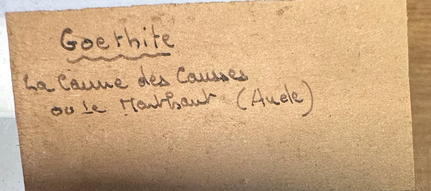 Goethite
La Caune des Causses
ou le Monthaut (Aude)